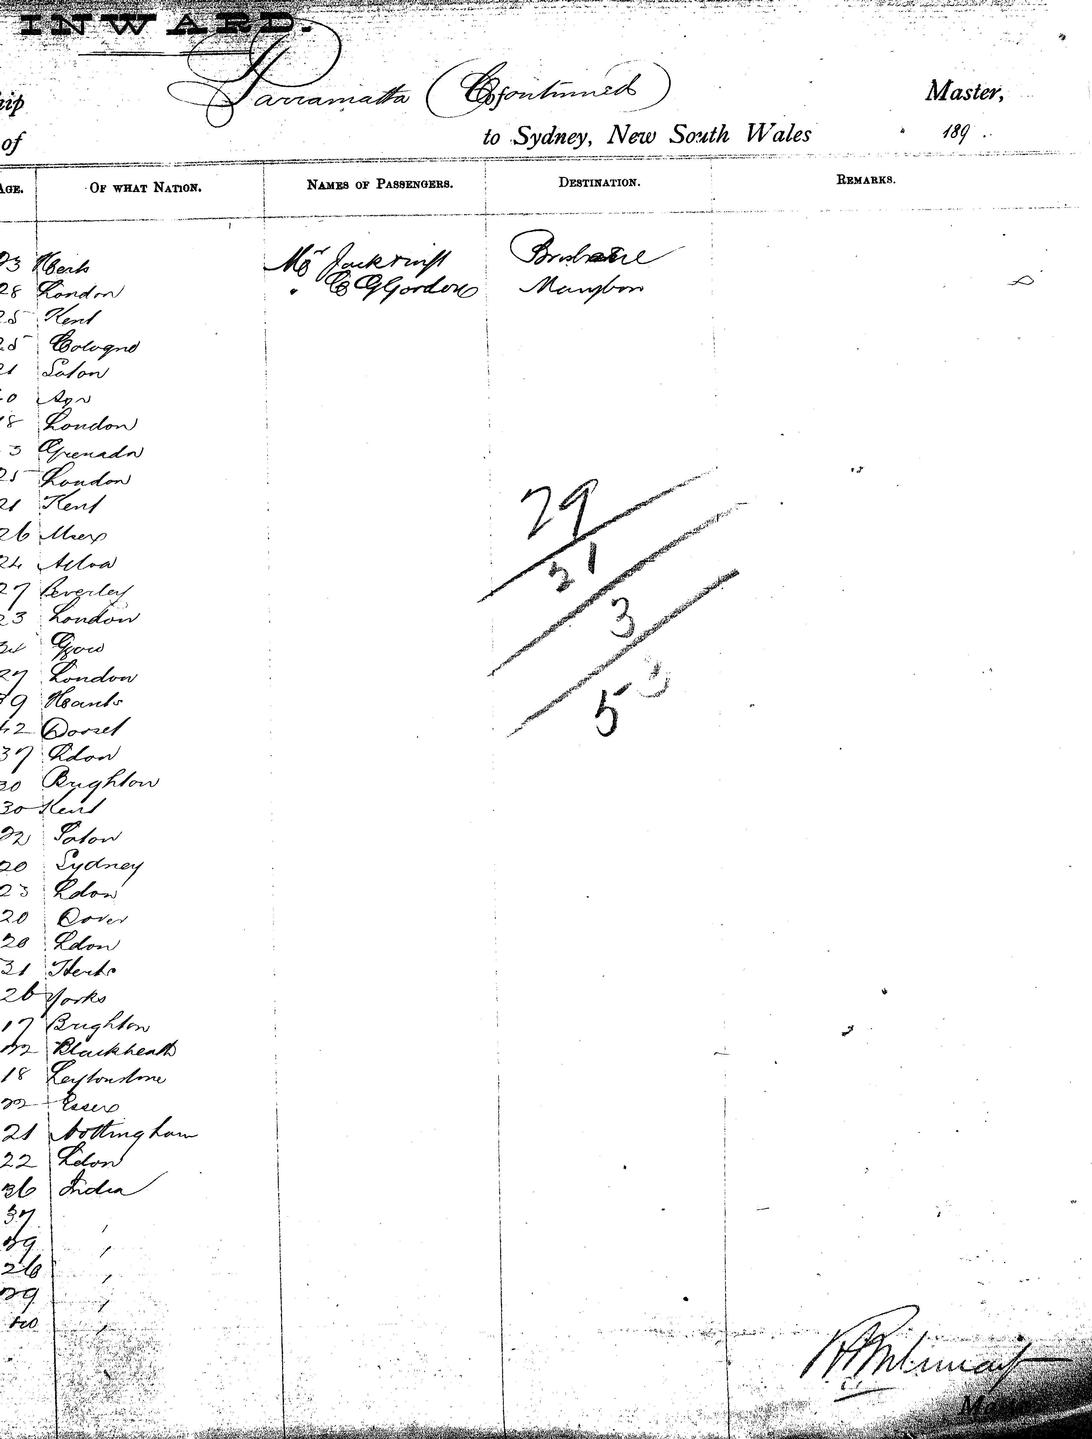 INWARD.
hip Parramatta (Continued) Master,
of to Sydney, New South Wales 189 .
AGE. OF WHAT NATION. NAMES OF PASSENGERS. DESTINATION. REMARKS.
23 Herts Mr Brisbane
28 London " C G Gordon
25 Kent
25 Cologne
21 Luton
0 Ayr
18 London
3 Grenada
25 London
21 Kent
26
24 Alloa
27 Beverley
23 London
34
27 London
39 Hants
42 Dorset
37 Ldon
30 Brighton
30 Kent
22 Luton
20 Sydney
23 Ldon
20 Dover
20 Ldon
31 Herts
26 Yorks
17 Brighton
22 Blackheath
18 Leytonstone
22 Essex
21 Nottingham
22 Ldon
36 India
37 "
29 "
26 "
29 "
40 "
29
21
3
53